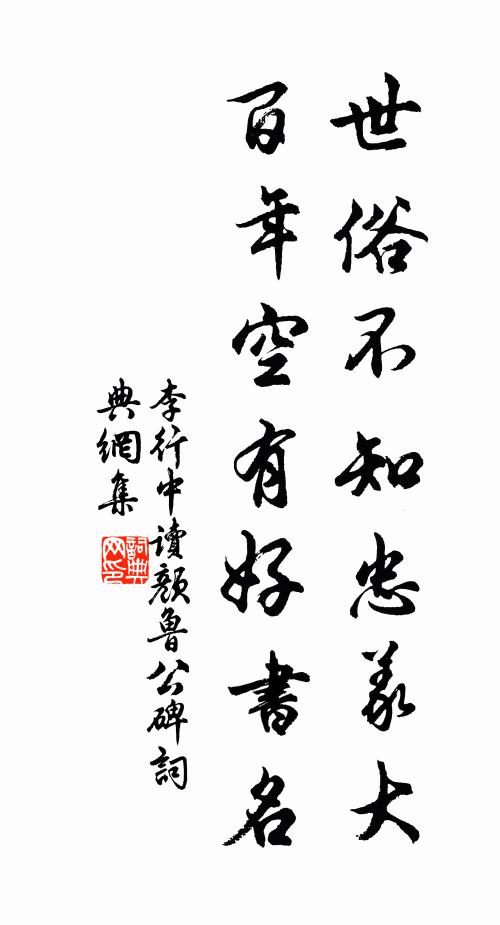 世俗不知忠義大
百年空有好書名
李行中讀顏魯公碑詞
典網集
詞典網印